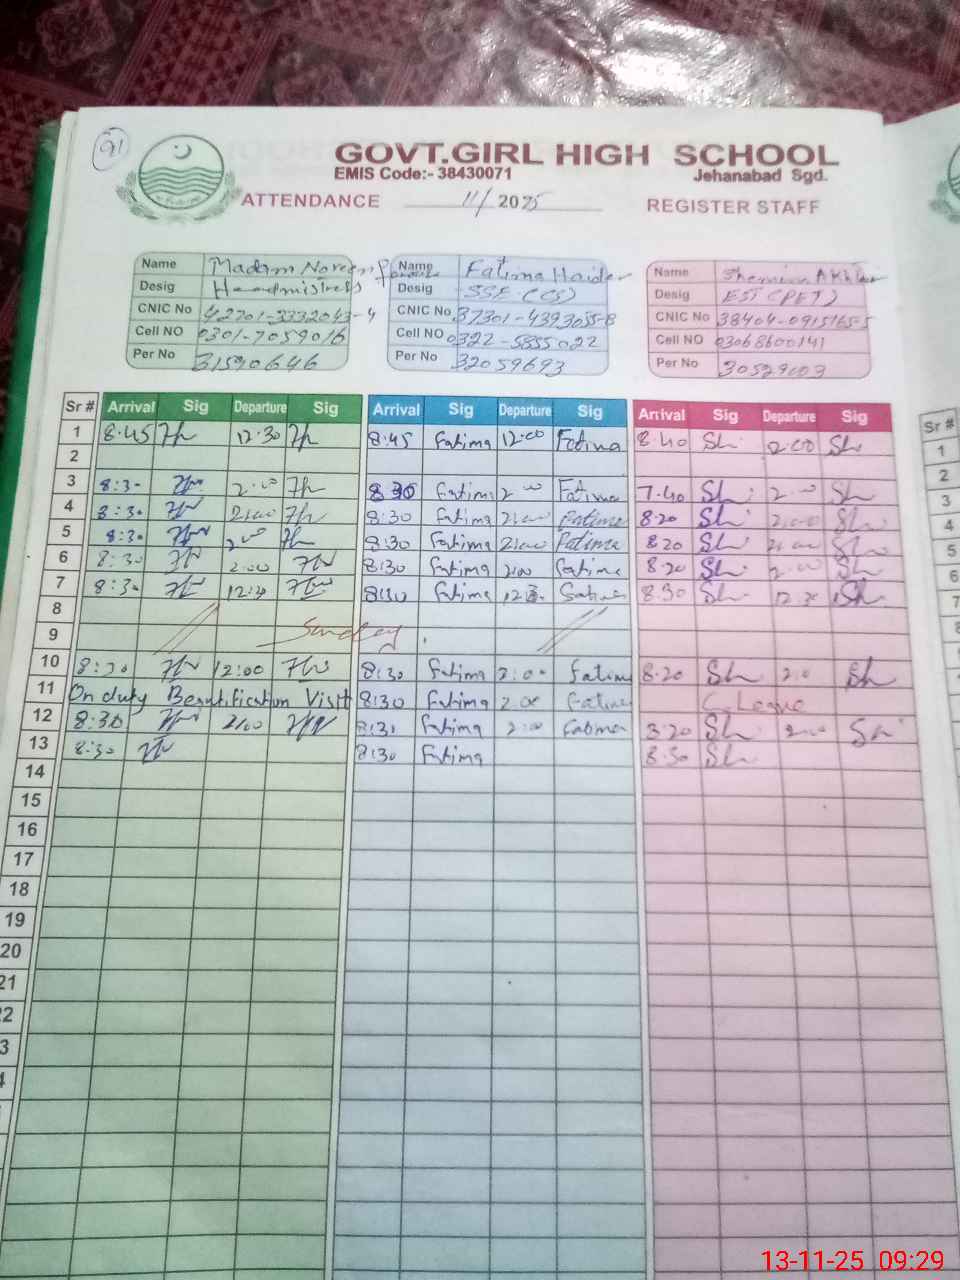 91
GOVT.GIRL HIGH SCHOOL
EMIS Code:- 38430071
Jehanabad Sgd.
ATTENDANCE 11/ 2025 REGISTER STAFF
Name Madam Noreen
Desig Headmistress
CNIC No 42701-3332043-4
Cell NO 0301-7059016
Per No 31590646
Name Fatima Haider
Desig SSE (CS)
CNIC No 37301-4393055-8
Cell NO 0322-5855022
Per No 32059693
Name Shamim Akhtar
Desig EST (PET)
CNIC No 38404-0915165-5
Cell NO 03068600141
Per No 30529003
Sr # Arrival Sig Departure Sig Arrival Sig Departure Sig Arrival Sig Departure Sig Sr #
1 8:45 12:30 8:45 Fatima 12:00 Fatima 8:40 Sh 2:00 Sh 1
2 2
3 8:30 2:00 8:30 Fatima 2:00 Fatima 7:40 Sh 2:00 Sh 3
4 8:30 2:00 8:30 Fatima 2:00 Fatima 8:20 Sh 2:00 Sh 4
5 8:30 2:00 8:30 Fatima 2:00 Fatima 8:20 Sh 2:00 Sh 5
6 8:30 2:00 8:30 Fatima 2:00 Fatima 8:20 Sh 2:00 Sh 6
7 8:30 12:30 8:30 Fatima 12:30 Fatima 8:30 Sh 12:30 Sh 7
8 8
9 Sunday 9
10 8:30 12:00 8:30 Fatima 2:00 Fatima 8:20 Sh 2:0 Sh
11 On duty Beautification Visit 8:30 Fatima 2:00 Fatima C. Leave
12 8:30 2:00 8:30 Fatima 2:00 Fatima 8:20 Sh 2:00 Sh
13 8:30 8:30 Fatima 8:30 Sh
14
15
16
17
18
19
20
21
22
3
4
13-11-25 09:29